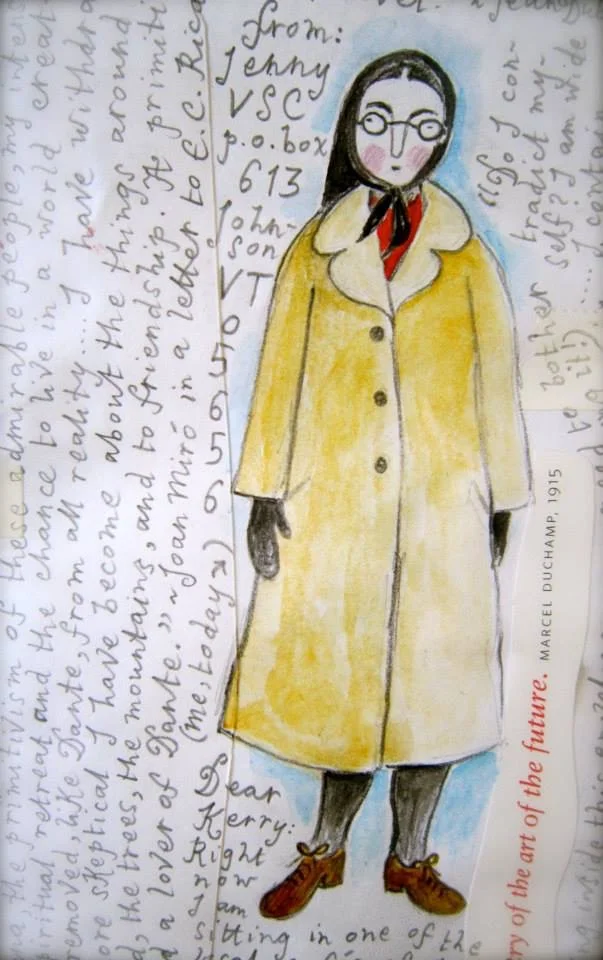 the primitivism of these admirable people, my
retreat and the chance to live in a world
removed, like Dante, from all reality.... I have
skeptical I have become about the things around
the trees, the mountains, and to friendship. A
a lover of Dante." ~Joan Miró in a letter to E.C.
(me, today ↘)
from:
Jenny
VSC
p.o.box
613
John-
son
VT
05656
Dear
Kerry:
Right
now
I am
sitting in one of the
"Do I con-
tradict my-
self? I am wide
.... I contain
to bother
it!)
of the art of the future. MARCEL DUCHAMP, 1915
inside this